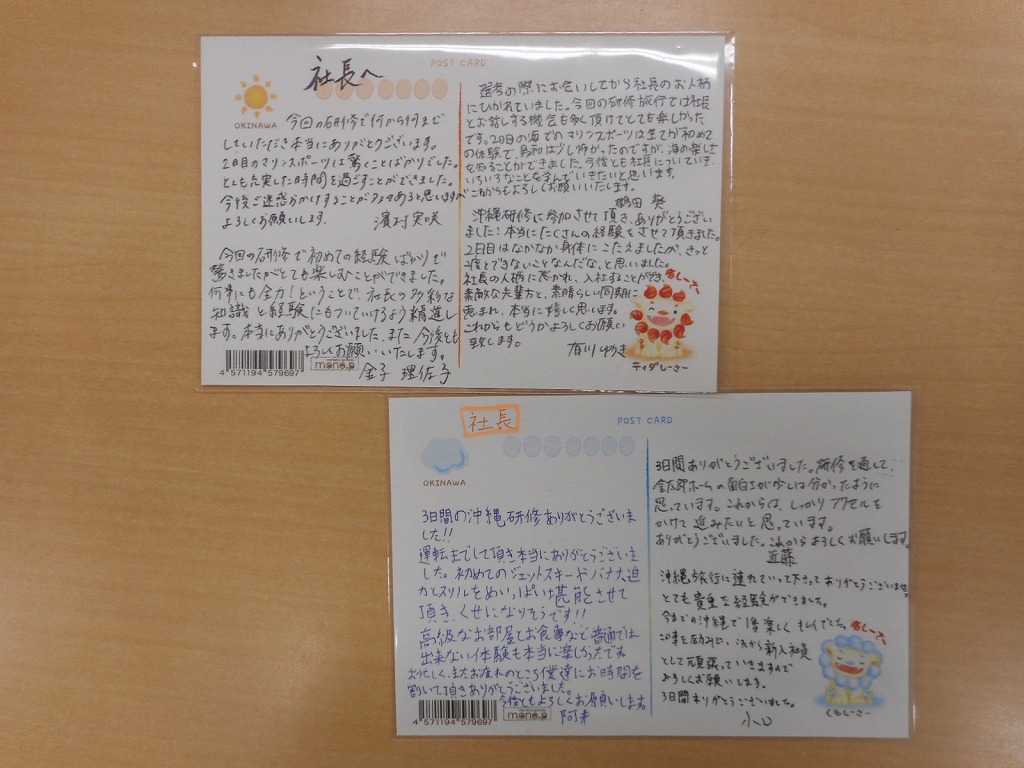 社長へ
POST CARD
OKINAWA
今回の研修で何から何まで
していただき本当にありがとうございます。
2日目のマリンスポーツは驚くことばかりでした。
とても充実した時間を過ごすことができました。
今後ご迷惑おかけすることが多々あると思いますが
よろしくお願いします。
濱村 実咲
今回の研修で初めての経験ばかりで
驚きましたがとても楽しむことができました。
何事にも全力!ということで、社長の多彩な
知識と経験にもついていけるよう精進し
ます。本当にありがとうございました。また今後とも
よろしくお願いいたします。
金子 理佐子
4 571194 579697
mono.p
選考の際にお会いしてから社長のお人柄
にひかれていました。今回の研修旅行では社長
とお話しする機会も多く頂けてとても楽しかった
です。2日目の海でのマリンスポーツは生まれて初めて
の体験で、最初は少し怖かったのですが、海の楽しさ
を知ることができました。今後とも社長についていき、
いろいろなことを学んでいきたいと思います。
これからもよろしくお願いいたします。
鶴田 葵
沖縄研修に参加させて頂き、ありがとうござい
ました!本当にたくさんの経験をさせて頂きました。
2日目はなかなか身体にこたえましたが、きっと
2度とできないことなんだな、と思いました。
社長の人柄に惹かれ、入社することができ、
素敵な先輩方と、素晴らしい同期に
恵まれ、本当に嬉しく思います。
これからもどうかよろしくお願い
致します。
有川 ゆうき
ティダしーさー
社長
POST CARD
OKINAWA
3日間の沖縄研修ありがとうございま
した!!
運転までして頂き本当にありがとうございま
した。初めてのジェットスキーやバナナ、迫
力とスリルをめいっぱい堪能させて
頂き、くせになりそうです!!
高級なお部屋とお食事など普通では
出来ない体験も本当に楽しかったです
お忙しく、またお疲れのところ僕達にお時間を
割いて頂きありがとうございました。
今後ともよろしくお願いします
阿井
4 571194 579697
mono.p
3日間ありがとうございました。研修を通して、
金太郎ホームの面白さが少しは分かったように
思っています。これからは、しっかりアクセルを
かけて進みたいと思っています。
ありがとうございました。これからよろしくお願いします。
近藤
沖縄旅行に連れていって下さってありがとうございます。
とても貴重な経験ができました。
今までの沖縄で1番楽しくすごせました。
この事を励みに、これから新入社員
として頑張っていきますので
よろしくお願いします。
3日間ありがとうございました。
小口
くもしーさー